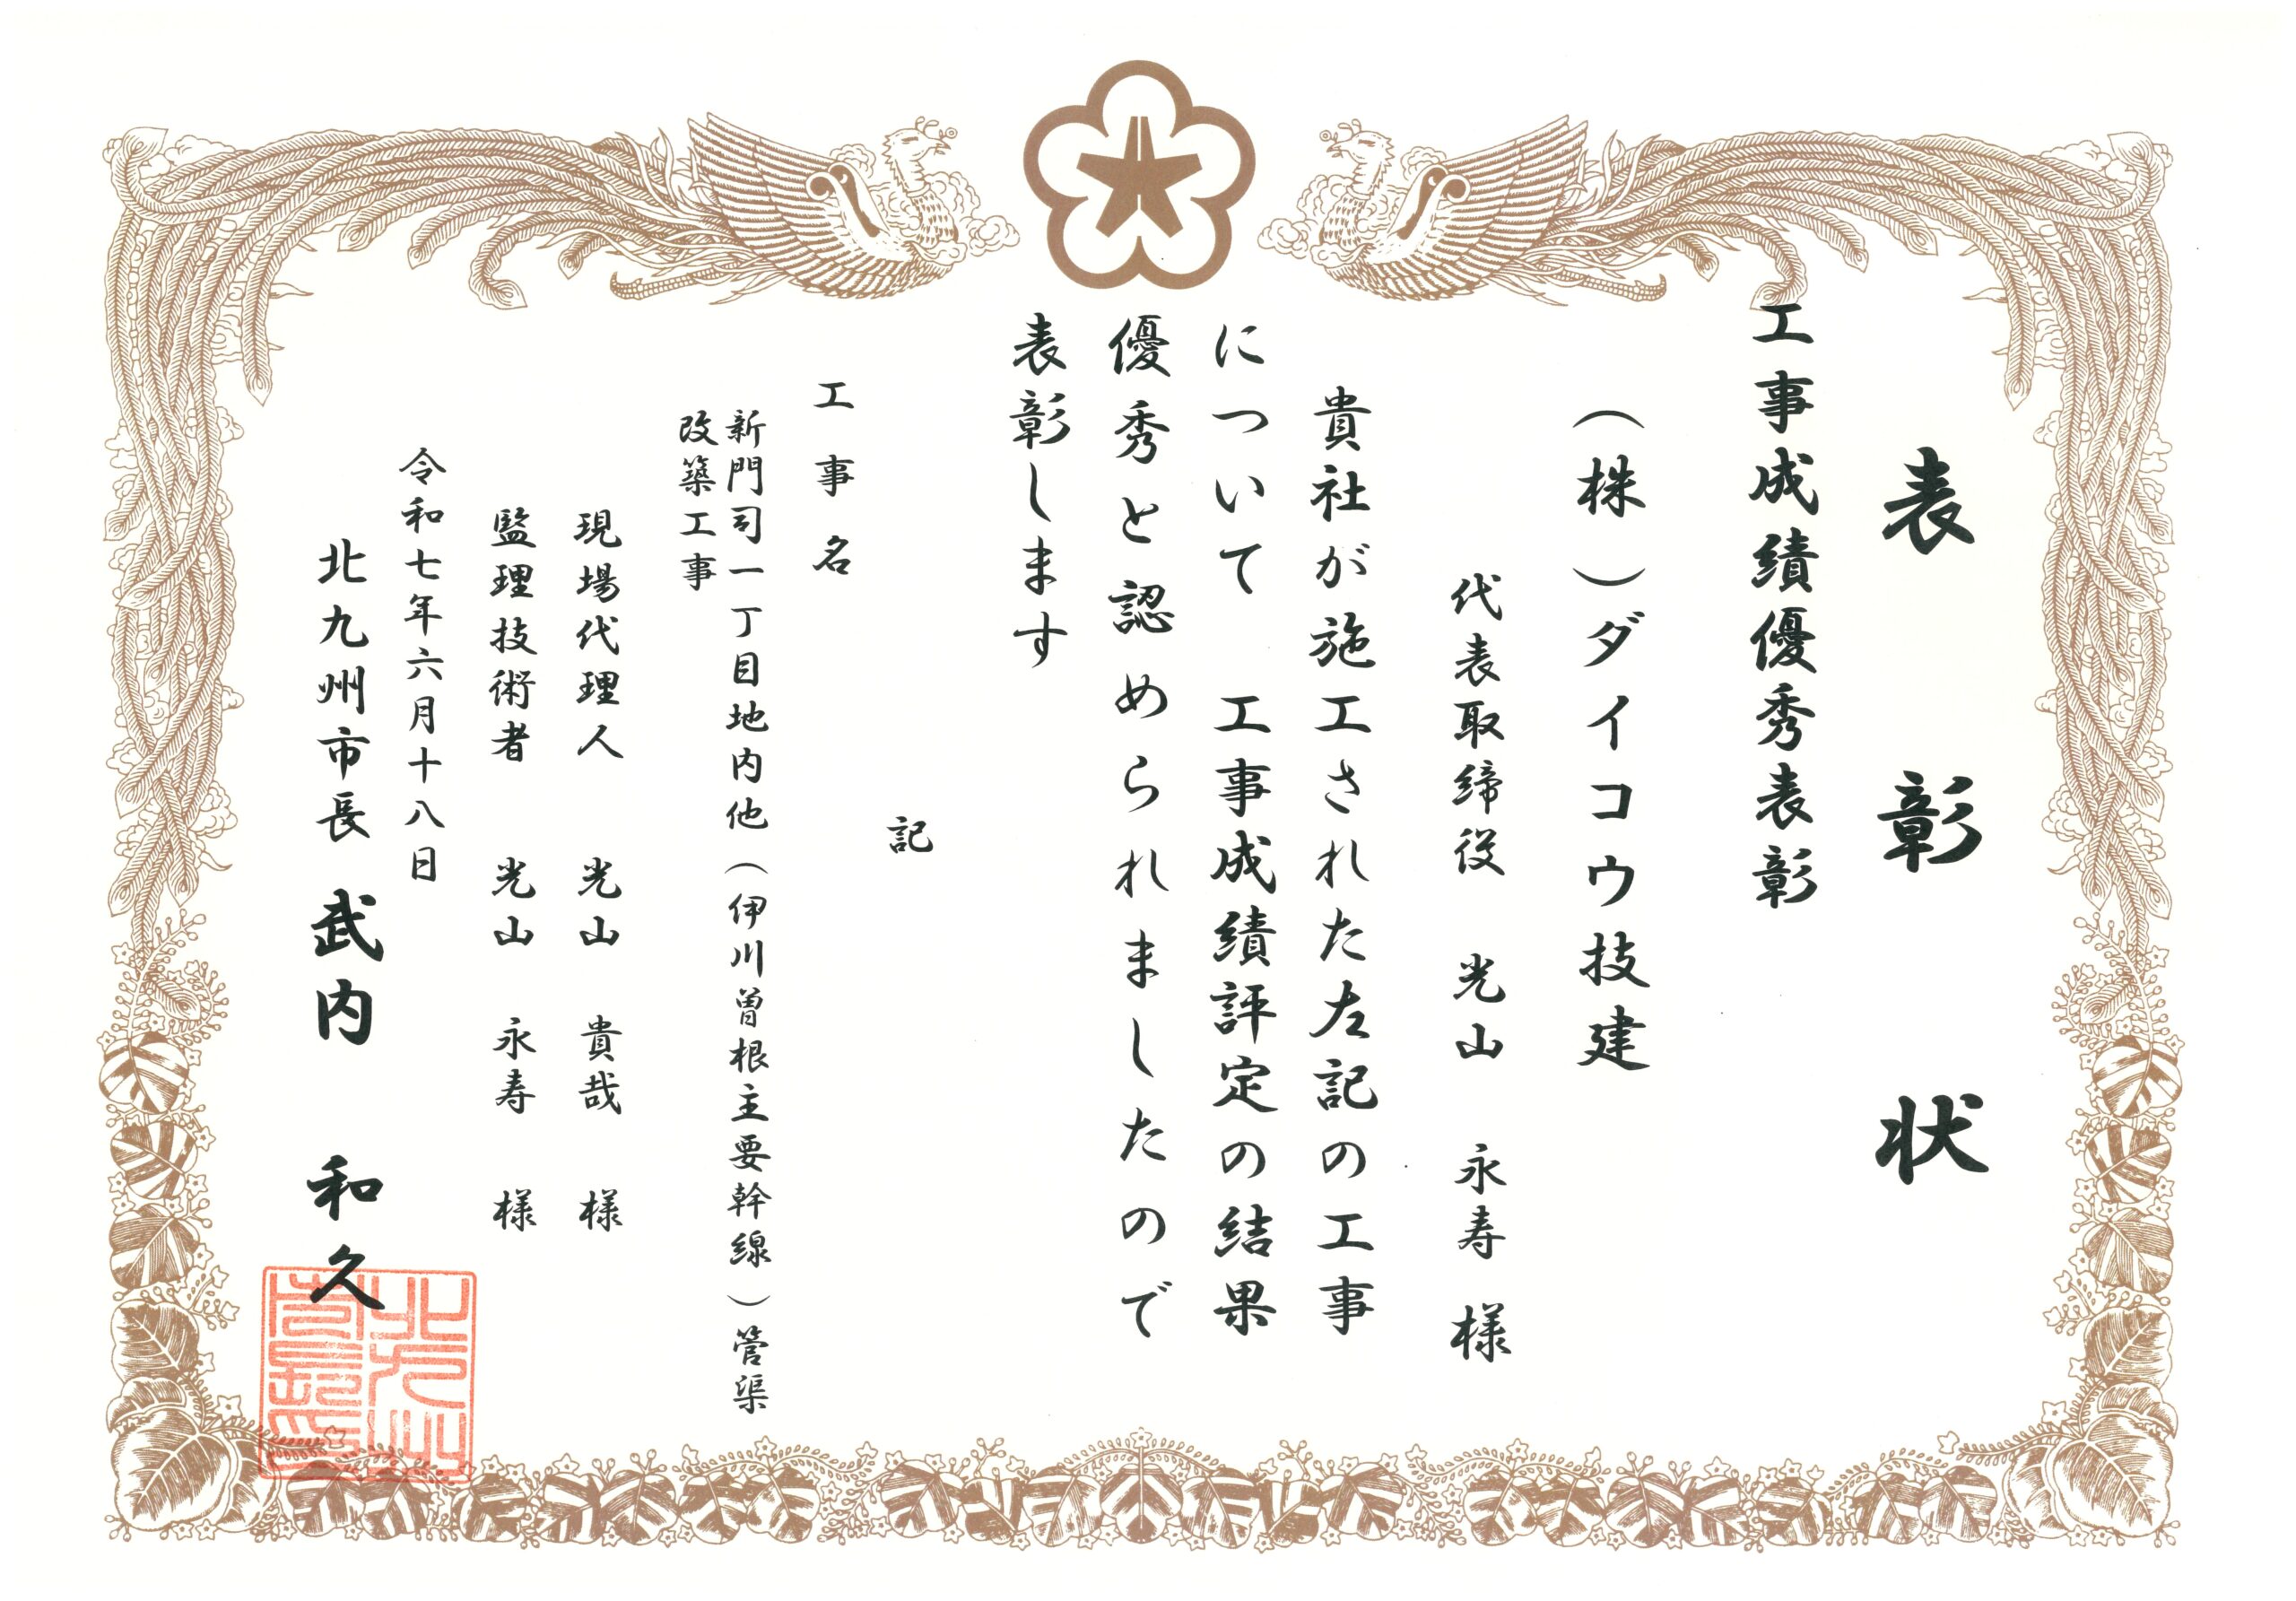 表彰状
工事成績優秀表彰
（株）ダイコウ技建
代表取締役 光山 永寿 様
貴社が施工された左記の工事
について 工事成績評定の結果
優秀と認められましたので
表彰します
記
工事名
新門司一丁目地内他（伊川曽根主要幹線）管渠
改築工事
現場代理人 光山 貴哉 様
監理技術者 光山 永寿 様
令和七年六月十八日
北九州市長 武内 和久
北九州
市長印